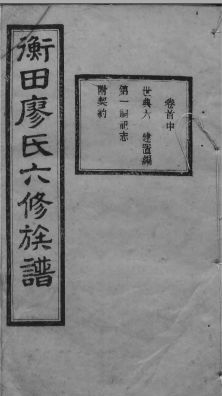 衡田廖氏六修族譜
卷首中
世典六 建置編
第一 嗣祀志
附契約